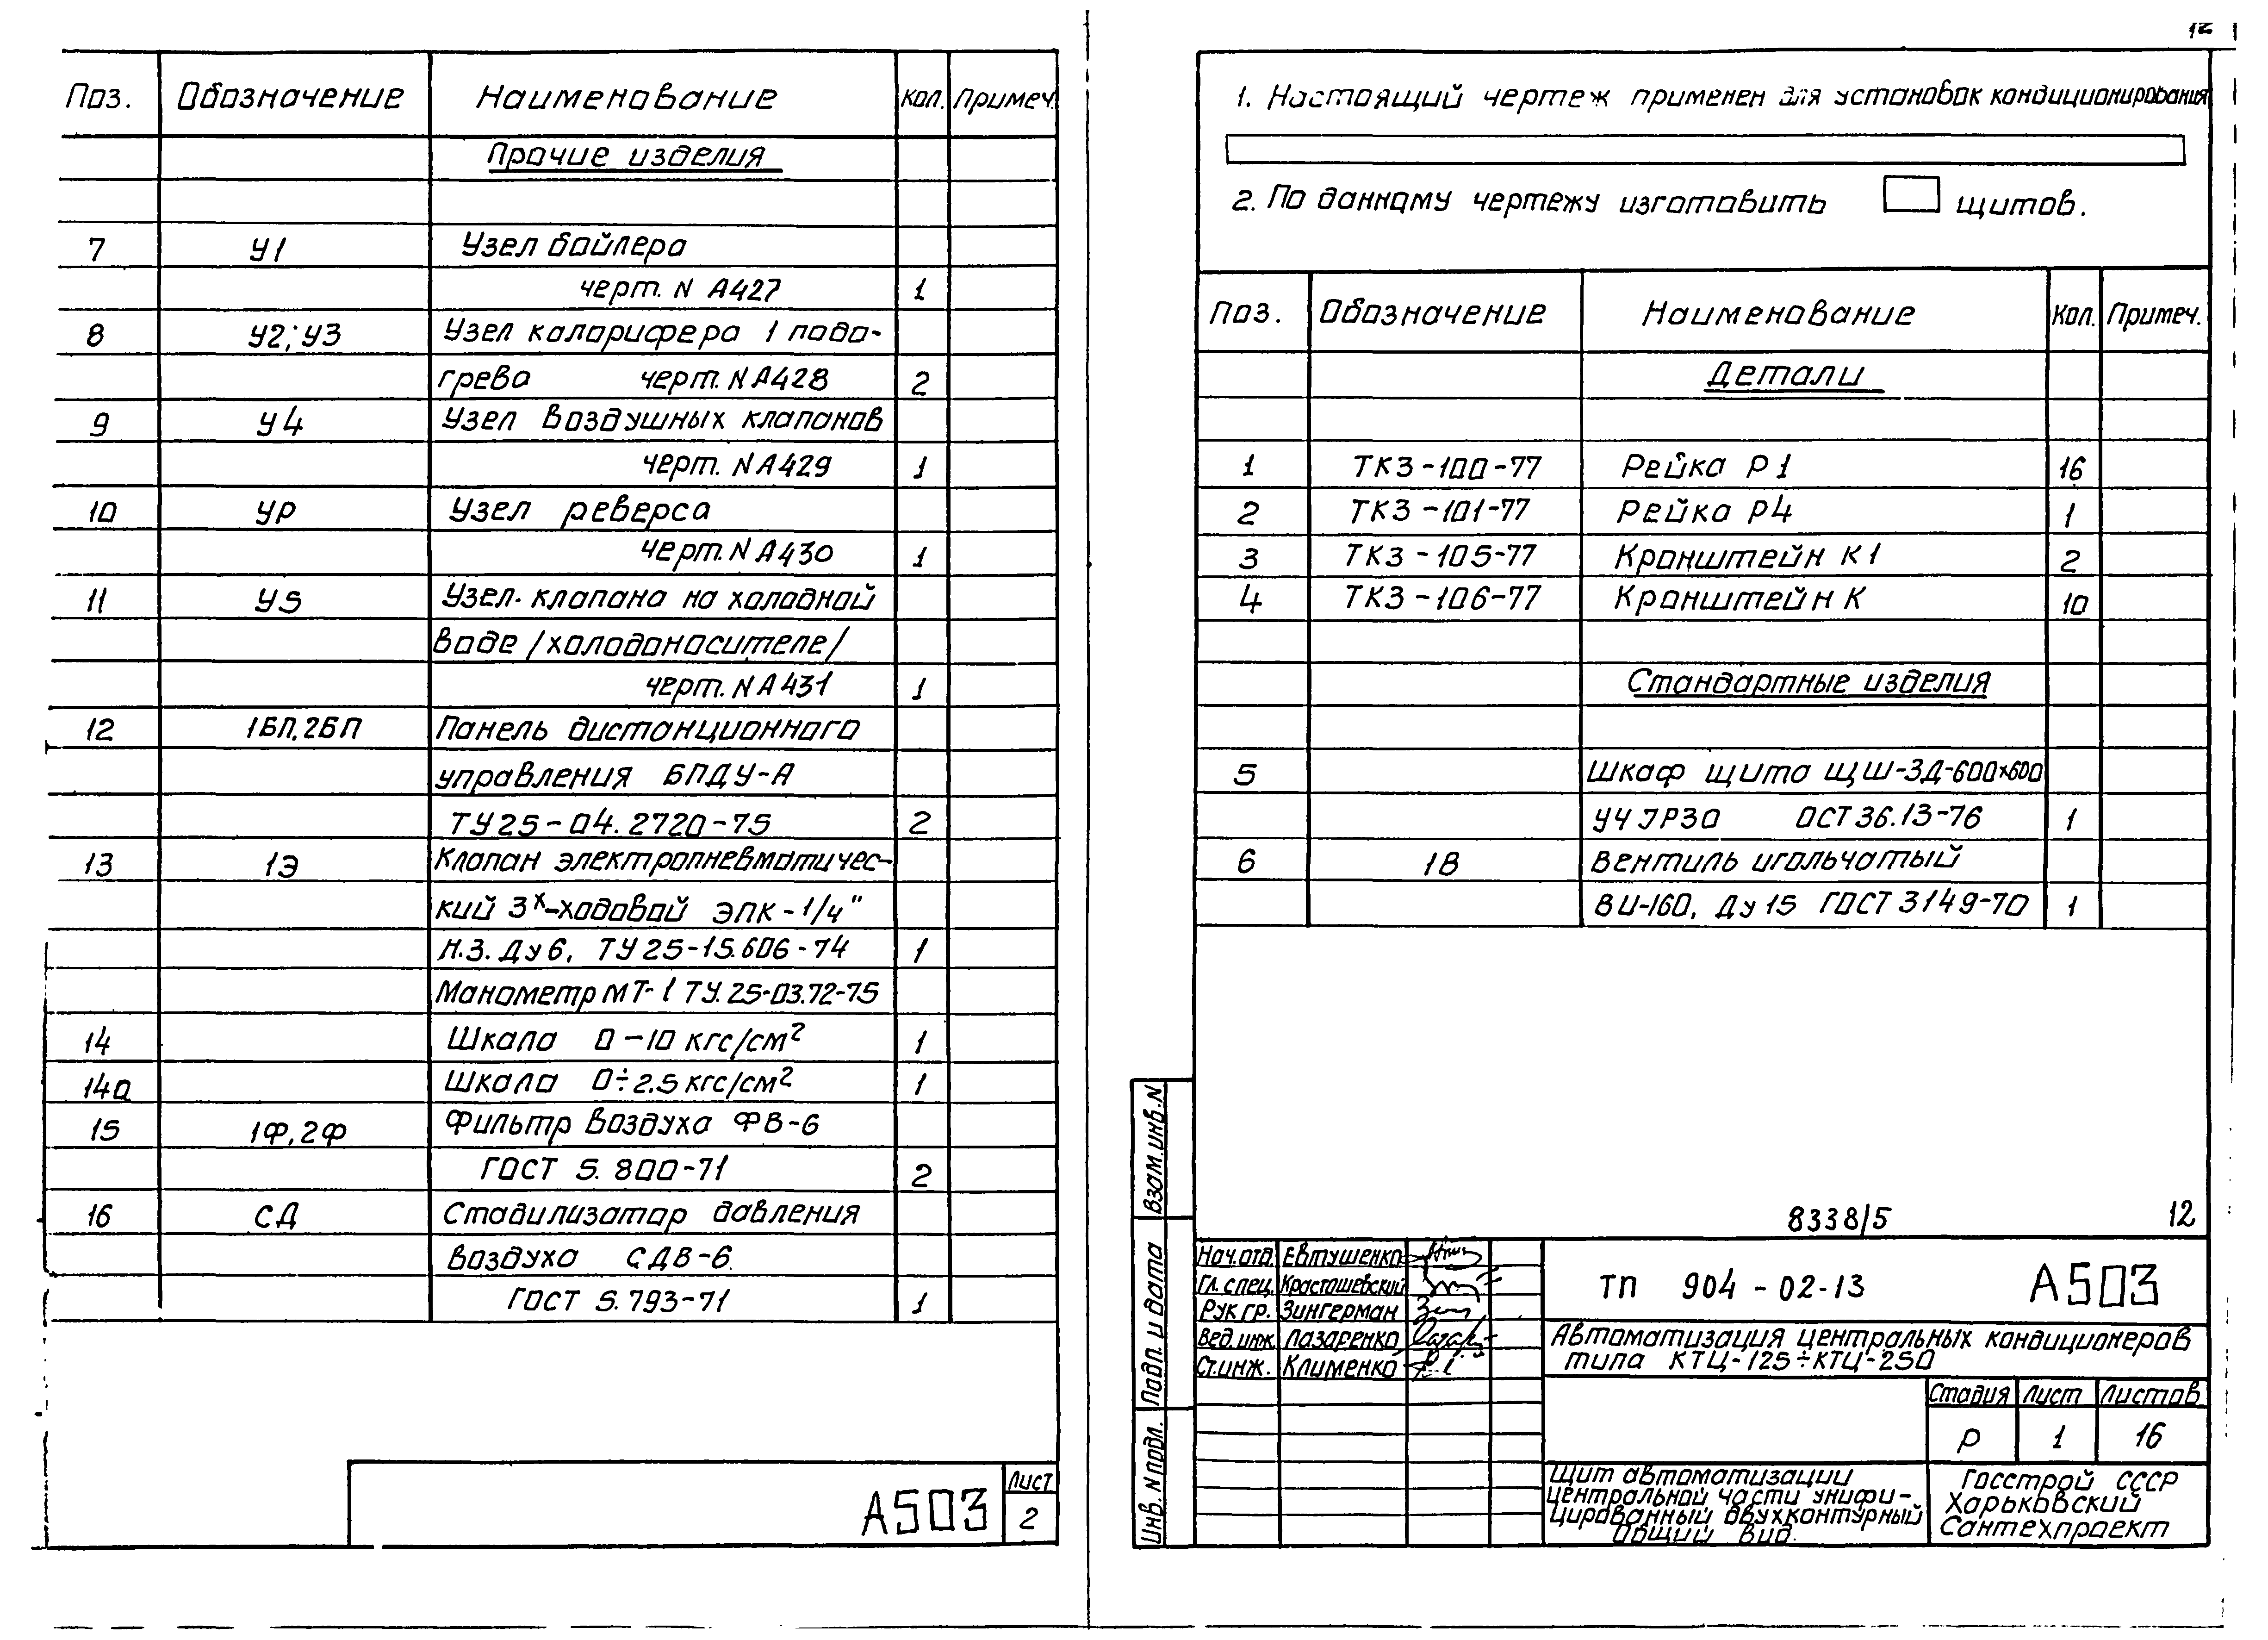 12
Поз. Обозначение Наименование Кол. Примеч.
Прочие изделия
7 У1 Узел бойлера
черт. N А427 1
8 У2; У3 Узел калорифера 1 подо-
грева черт. N А428 2
9 У4 Узел воздушных клапанов
черт. N А429 1
10 УР Узел реверса
черт. N А430 1
11 У5 Узел клапана на холодной
воде /холодоносителе/
черт. N А431 1
12 1БП, 2БП Панель дистанционного
управления БПДУ-А
ТУ25-04.2720-75 2
13 1Э Клапан электропневматичес-
кий 3х-ходовой ЭПК-1/4"
Н.З. Ду6, ТУ25-15.606-74 1
Манометр МТ-1 ТУ.25-03.72-75
14 Шкала 0-10 кгс/см² 1
14а Шкала 0÷2.5 кгс/см² 1
15 1Ф, 2Ф Фильтр воздуха ФВ-6
ГОСТ 5.800-71 2
16 СД Стадилизатор давления
воздуха СДВ-6
ГОСТ 5.793-71 1
А503
Лист
2
1. Настоящий чертеж применен для установок кондиционирования
2. По данному чертежу изготовить щитов.
Поз. Обозначение Наименование Кол. Примеч.
Детали
1 ТК3-100-77 Рейка Р1 16
2 ТК3-101-77 Рейка Р4 1
3 ТК3-105-77 Кронштейн К1 2
4 ТК3-106-77 Кронштейн К 10
Стандартные изделия
5 Шкаф щита ЩШ-ЗД-600х600
УЧ JР30 ОСТ 36.13-76 1
6 1В Вентиль игольчатый
ВИ-160, Ду15 ГОСТ 3149-70 1
8338/5 12
Взам.инв.N
Подп. и дата
Инв. N подл.
Нач.отд. Евтушенко
Гл. спец. Красташевский
Рук гр. Зингерман
Вед.инж. Лазаренко
Ст.инж. Клименко
ТП 904-02-13 А503
Автоматизация центральных кондиционеров
типа КТЦ-125÷КТЦ-250
Стадия Лист Листов
Р 1 16
Щит автоматизации
центральной части унифи-
цированный двухконтурный
Общий вид.
Госстрой СССР
Харьковский
Сантехпроект